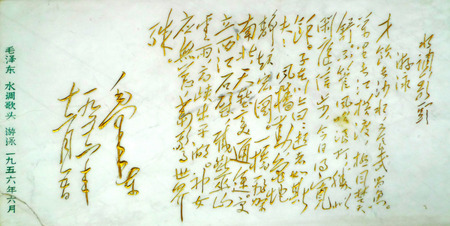 水调歌头
游泳
才饮长沙水又食武昌鱼
万里长江横渡极目楚天
舒不管风吹浪打胜似
闲庭信步今日得宽
馀子在川上曰逝者如斯
夫风樯动龟蛇
静起宏图一桥飞架
南北天堑变通途更
立西江石壁截断巫山
云雨高峡出平湖神女
应无恙当惊世界
殊
毛泽东
一九五六年
十二月五日
毛泽东 水调歌头 游泳 一九五六年六月